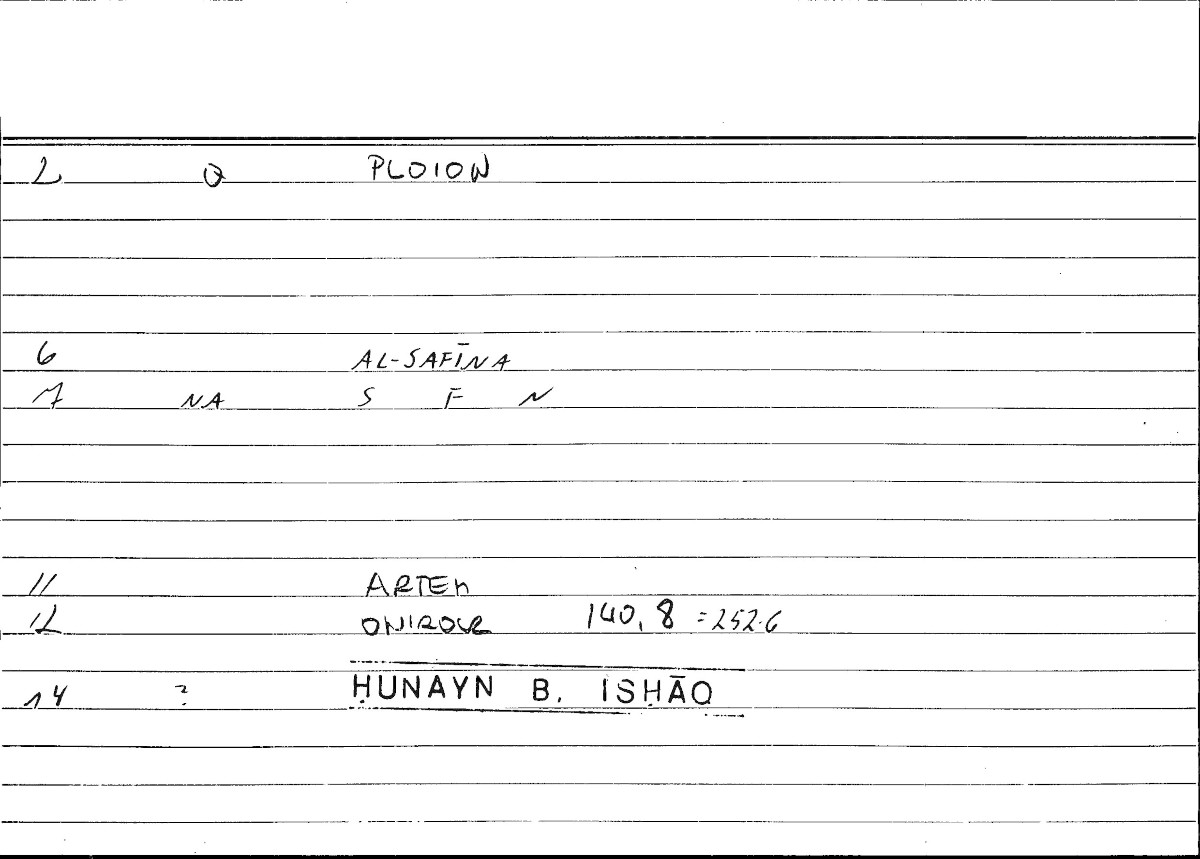 2 Q PLOION
6 AL-SAFĪNA
7 NA S F N
11 ARTEM
12 ONIROCR 140,8 = 252.6
14 ? ḤUNAYN B. ISḤĀQ